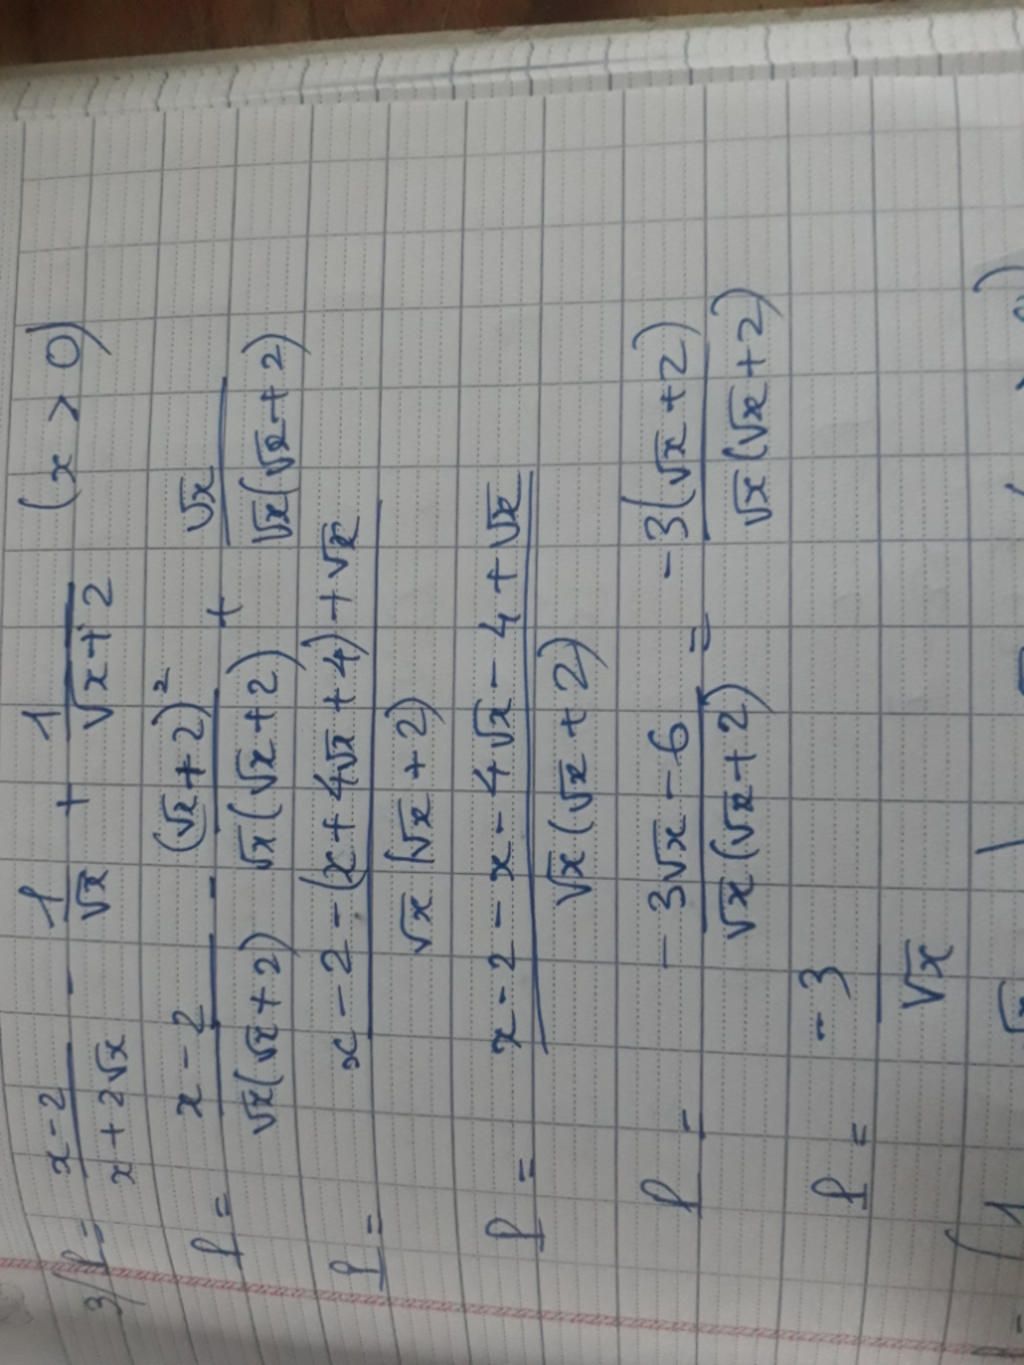 3/ P = \frac{x-2}{x+2\sqrt{x}} - \frac{1}{\sqrt{x}} + \frac{1}{\sqrt{x}+2} (x > 0)
P = \frac{x-2}{\sqrt{x}(\sqrt{x}+2)} - \frac{(\sqrt{x}+2)^2}{\sqrt{x}(\sqrt{x}+2)} + \frac{\sqrt{x}}{\sqrt{x}(\sqrt{x}+2)}
P = \frac{x-2-(x+4\sqrt{x}+4)+\sqrt{x}}{\sqrt{x}(\sqrt{x}+2)}
P = \frac{x-2-x-4\sqrt{x}-4+\sqrt{x}}{\sqrt{x}(\sqrt{x}+2)}
P - \frac{-3\sqrt{x}-6}{\sqrt{x}(\sqrt{x}+2)} = \frac{-3(\sqrt{x}+2)}{\sqrt{x}(\sqrt{x}+2)}
P = \frac{-3}{\sqrt{x}}